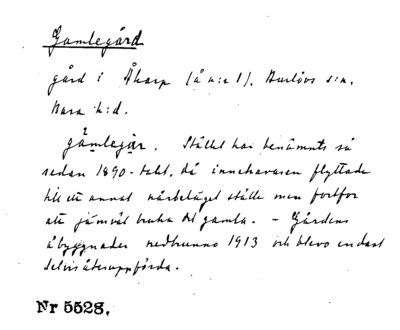 Gamlegård
gård i Åkarp (å n:r 1), Burlövs s:n,
Bara h:d.
gamlegår. Stället har benämnts så
sedan 1890-talet, då innehavaren flyttade
till ett annat närbeläget ställe men fortfor
att jämväl bruka det gamla. - Gårdens
åbyggnader nedbrunno 1913 och blevo endast
delvis återuppförda.
Nr 5528.